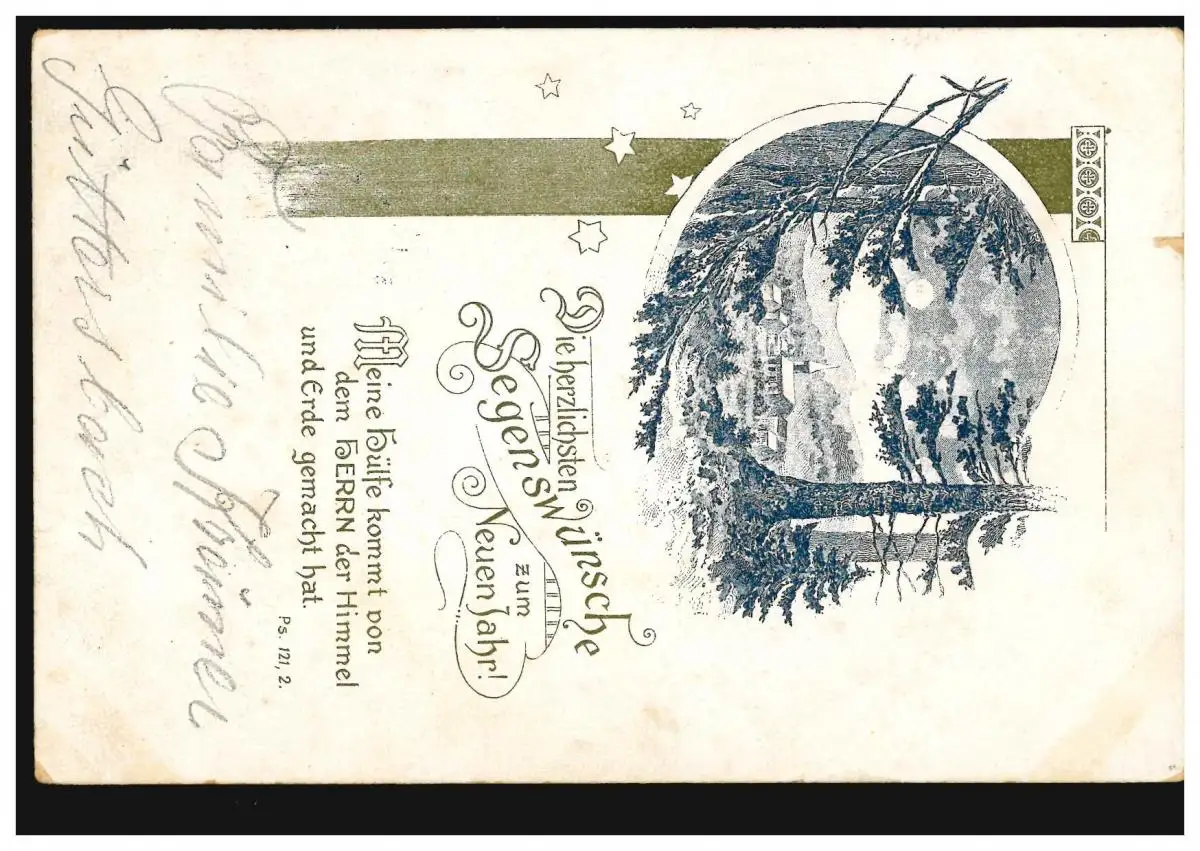 Die herzlichsten
Segenswünsche
zum
Neuen Jahr!
Meine Hülfe kommt von
dem HERRN der Himmel
und Erde gemacht hat.
Ps. 121, 2.
Güttersbach